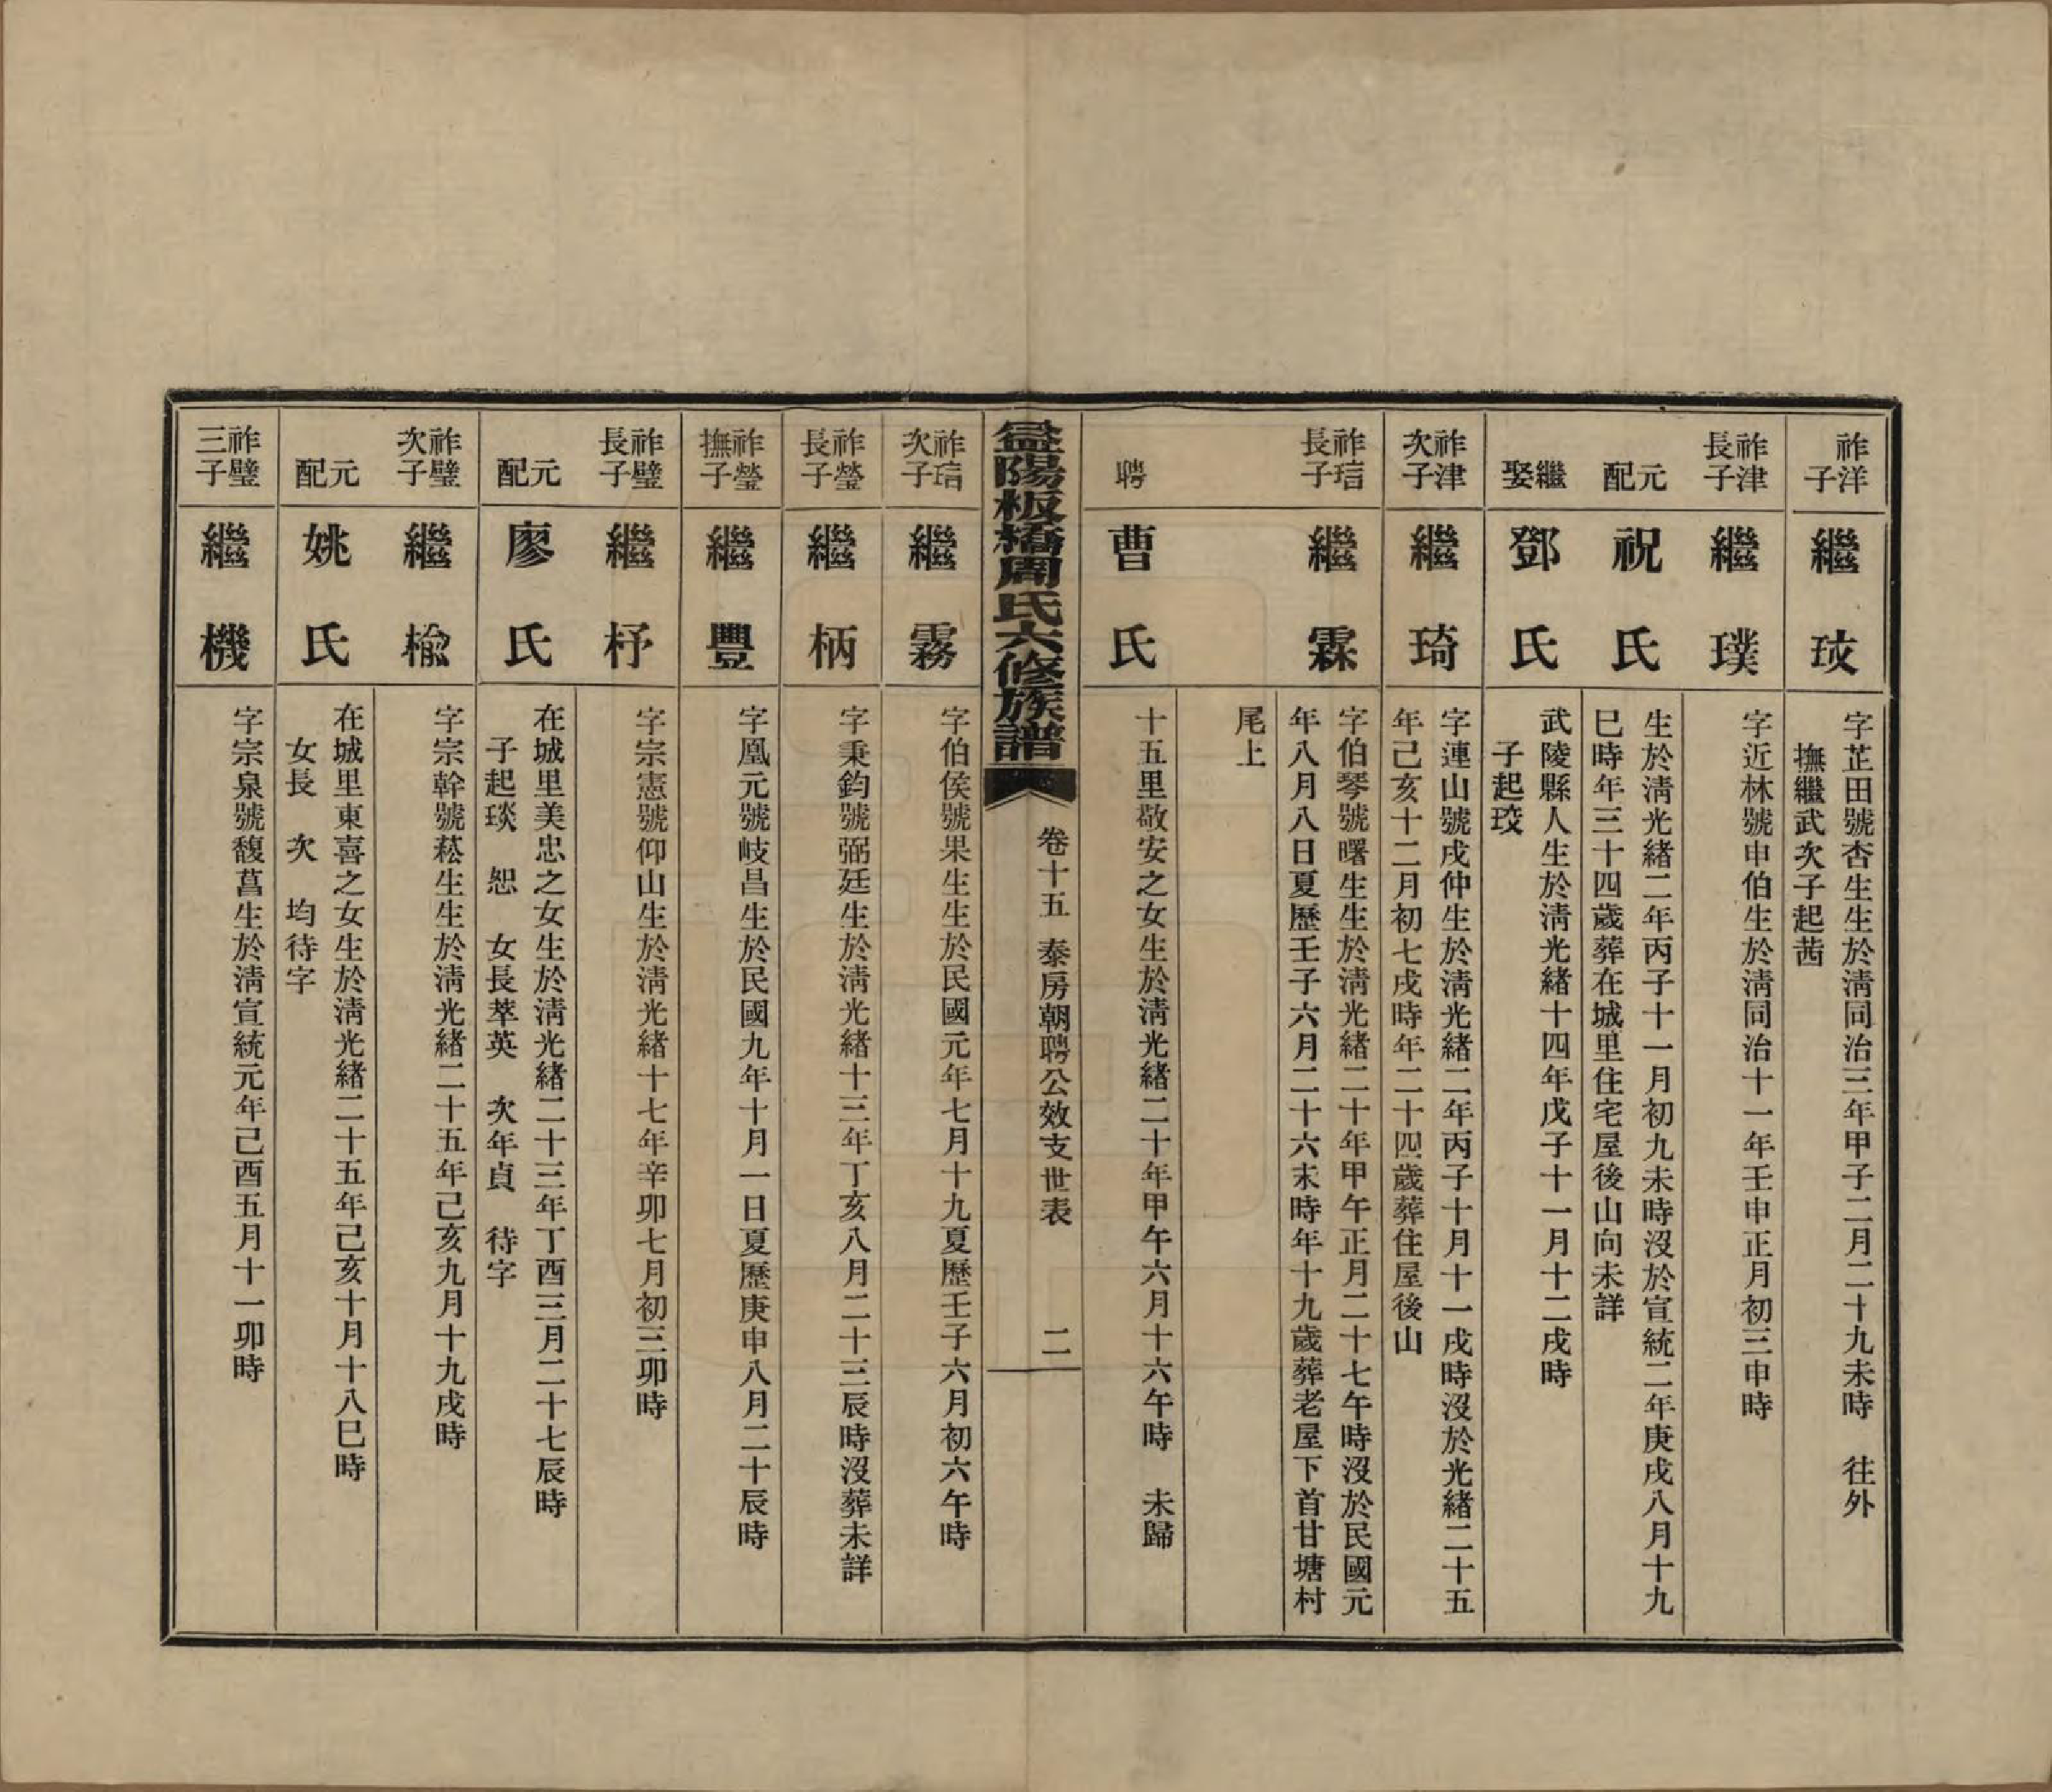 祚洋
子
繼玟
字芷田號杏生生於清同治三年甲子二月二十九未時　往外
撫繼武次子起茜
祚津
長子
繼璞
字近林號申伯生於清同治十一年壬申正月初三申時
元配
祝氏
生於清光緒二年丙子十一月初九未時沒於宣統二年庚戌八月十九
巳時年三十四歲葬在城里住宅屋後山向未詳
繼娶
鄧氏
武陵縣人生於清光緒十四年戊子十一月十二戌時
子起珓
祚津
次子
繼琦
字連山號戌仲生於清光緒二年丙子十月十一戌時沒於光緒二十五
年己亥十二月初七戌時年二十四歲葬住屋後山
祚琂
長子
繼霖
字伯琴號曙生生於清光緒二十年甲午正月二十七午時沒於民國元
年八月八日夏歷壬子六月二十六未時年十九歲葬老屋下首甘塘村
尾上
聘
曹氏
十五里敬安之女生於清光緒二十年甲午六月十六午時　未歸
益陽板橋周氏六修族譜
卷十五　泰房朝聘公效支世表　二
祚琂
次子
繼霧
字伯侯號果生生於民國元年七月十九夏歷壬子六月初六午時
祚瑩
長子
繼柄
字秉鈞號弼廷生於清光緒十三年丁亥八月二十三辰時沒葬未詳
祚瑩
撫子
繼豐
字凰元號岐昌生於民國九年十月一日夏歷庚申八月二十辰時
祚璧
長子
繼杼
字宗憲號仰山生於清光緒十七年辛卯七月初三卯時
元配
廖氏
在城里美忠之女生於清光緒二十三年丁酉三月二十七辰時
子起琰　恕　女長萃英　次年貞　待字
祚璧
次子
繼楡
字宗幹號菘生生於清光緒二十五年己亥九月十九戌時
元配
姚氏
在城里東喜之女生於清光緒二十五年己亥十月十八巳時
女長　次　均待字
祚璧
三子
繼機
字宗泉號馥菖生於清宣統元年己酉五月十一卯時